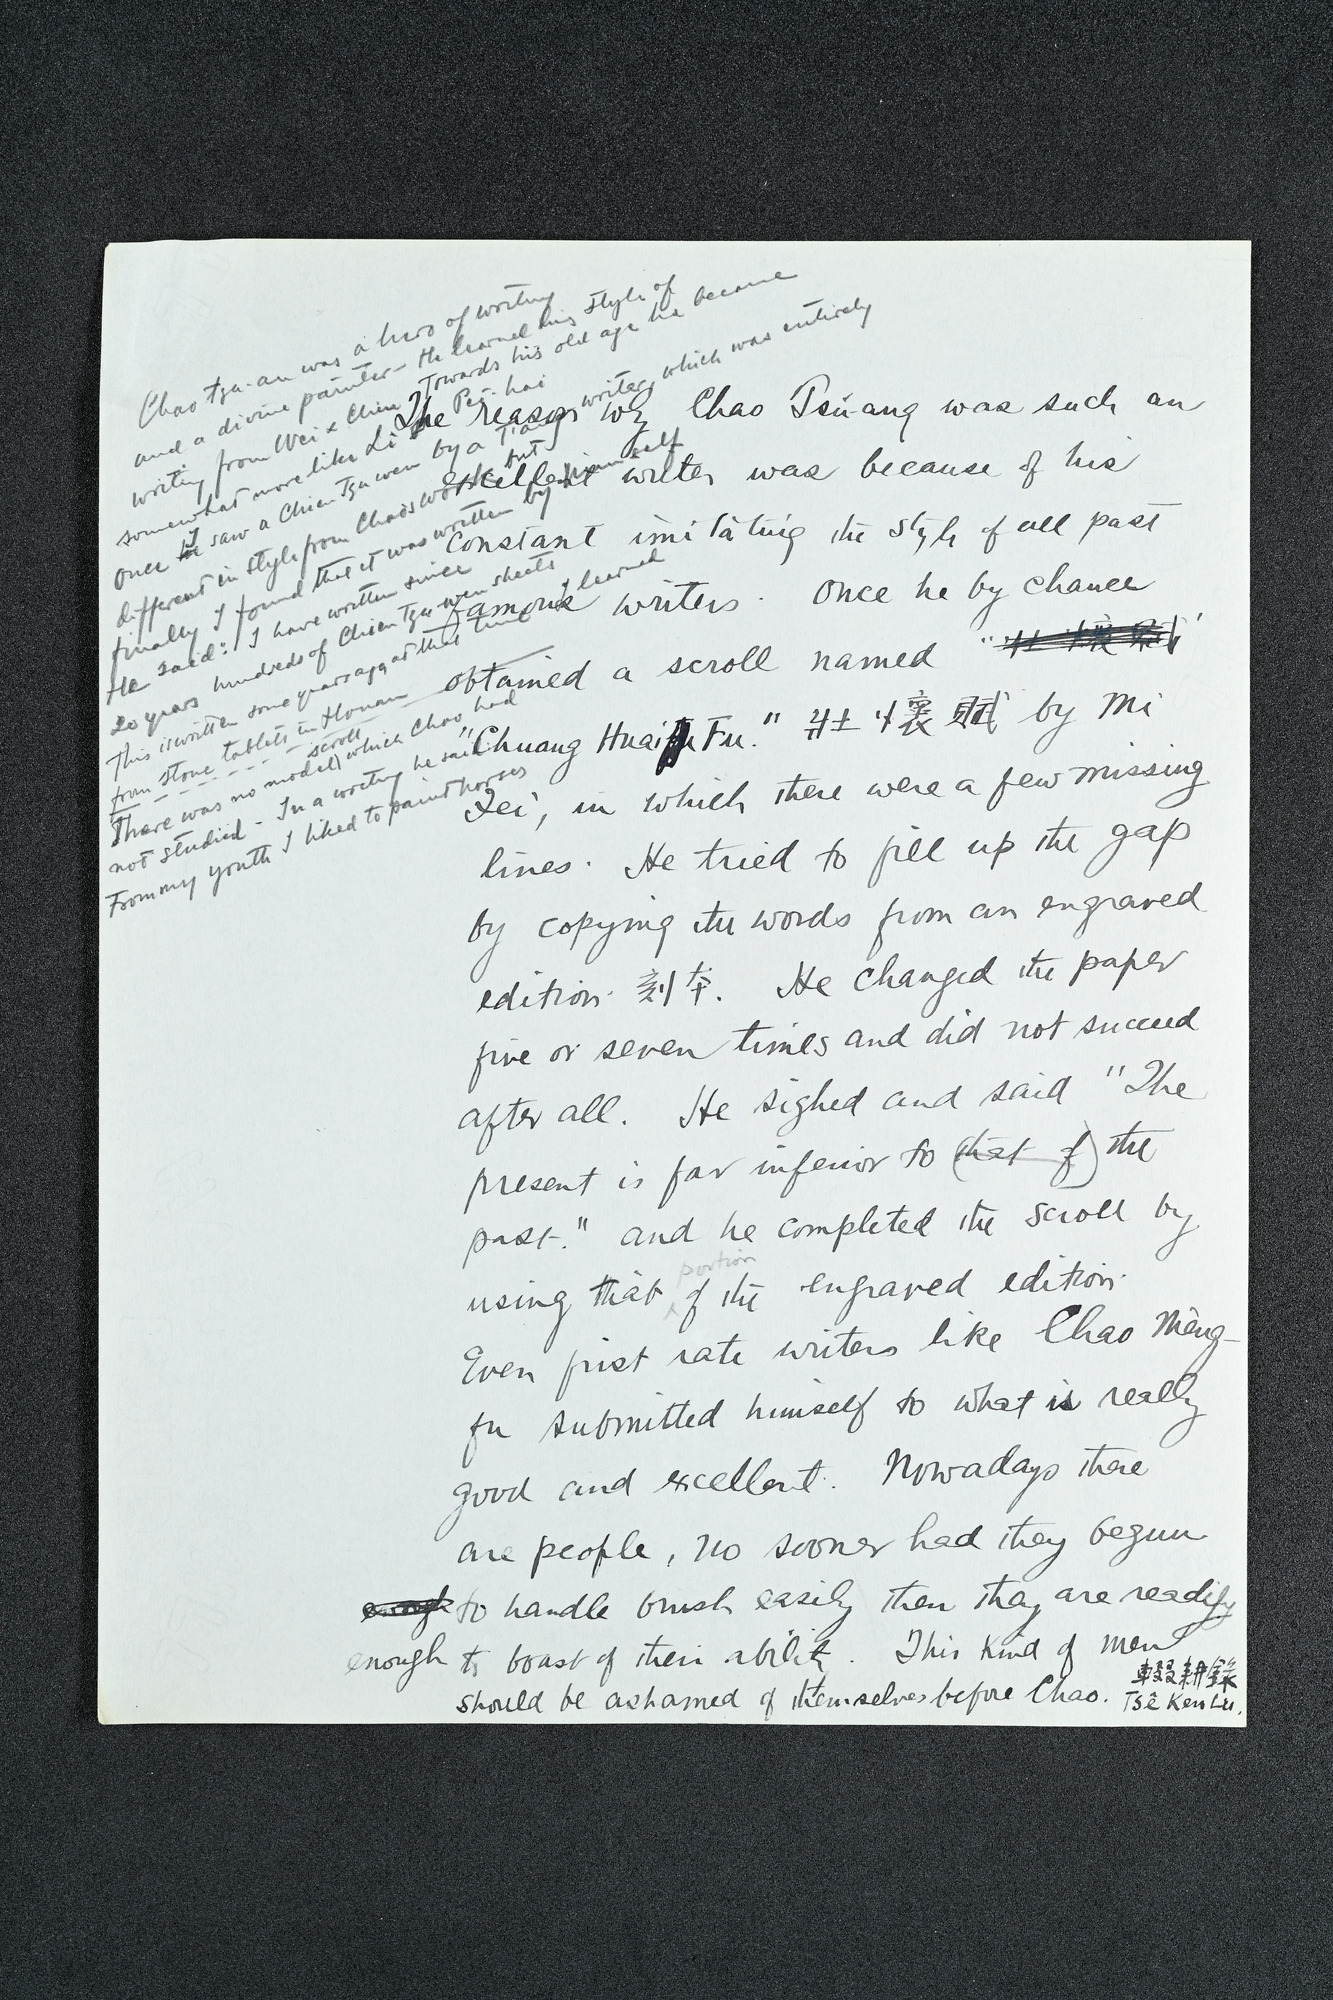 Chao Tzu-an was a hero of writing
and a divine painter - He learned his style of
writing from Wei & Chin. Towards his old age he became
somewhat more like Li Pei-hai
Once I saw a Chien Tzu wen by a T'ang writer, which was entirely
different in style from Chao's work but
finally I found that it was written by himself
He said: I have written since
20 years hundreds of Chien Tzu-wen sheets
This is written some years ago at that time I learned
from stone tablets in Honan
There was no model scroll which Chao had
not studied - In a writing he said
From my youth I liked to paint horses
The reason why Chao Tsü-ang was such an
excellent writer was because of his
constant imitating the style of all past
famous writers. Once he by chance
obtained a scroll named "壮懐賦"
"Chuang Huai Fu." 壮懐賦 by Mi
Fei, in which there were a few missing
lines. He tried to fill up the gap
by copying the words from an engraved
edition 刻本. He changed the paper
five or seven times and did not succeed
after all. He sighed and said "The
present is far inferior to (that of) the
past." and he completed the scroll by
using that portion of the engraved edition.
Even first rate writers like Chao Mêng-
fu submitted himself to what is really
good and excellent. Nowadays there
are people, no sooner had they begun
enough to handle brush easily then they are readily
enough to boast of their ability. This kind of men
should be ashamed of themselves before Chao. 輟耕錄
Tsê Ken Lu.